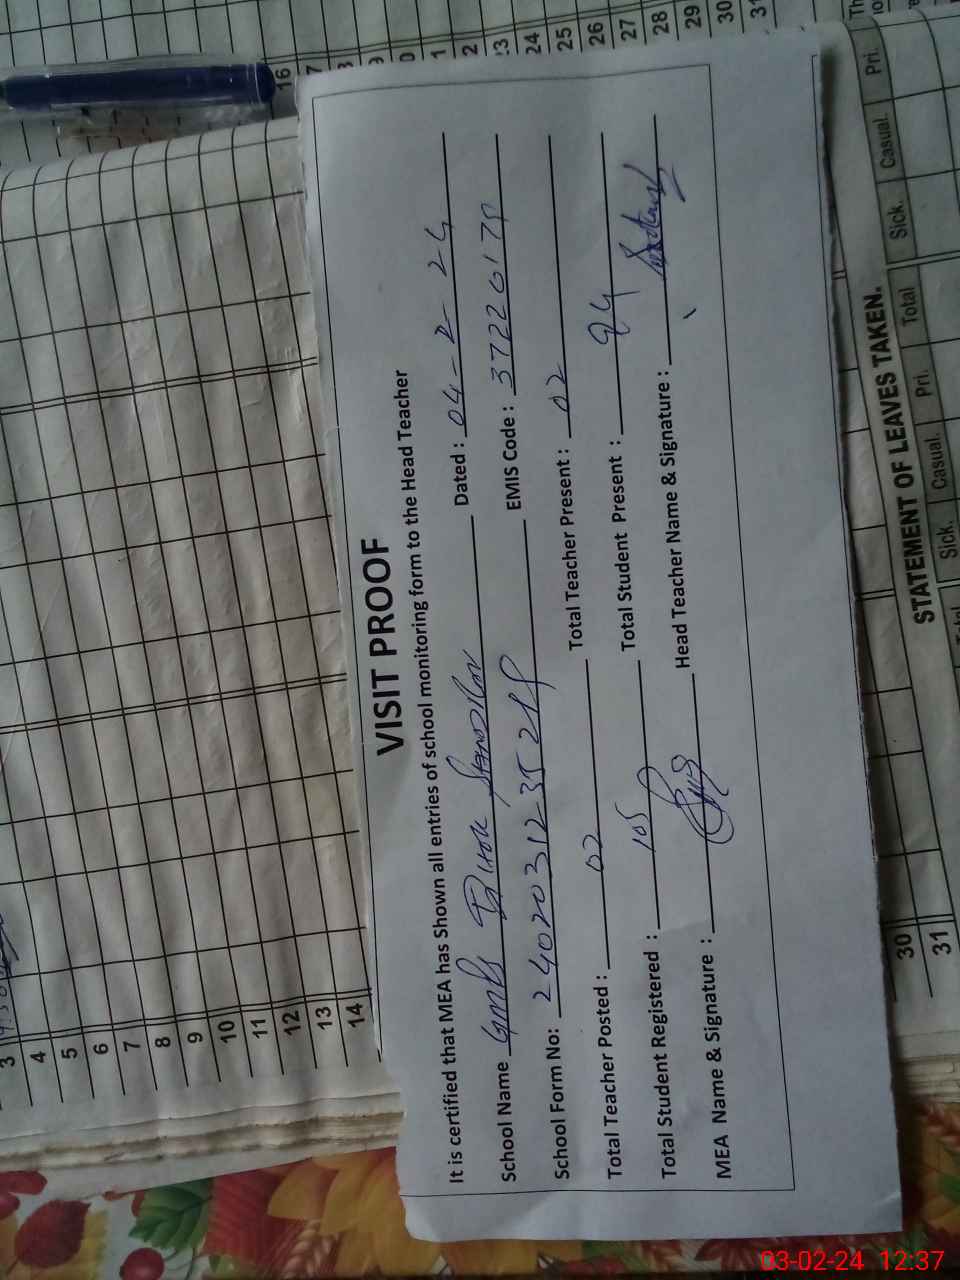 VISIT PROOF
It is certified that MEA has Shown all entries of school monitoring form to the Head Teacher
School Name GMPS Dated : 04-2-24
School Form No: 24020312352 EMIS Code : 37220178
Total Teacher Posted : 02 Total Teacher Present : 02
Total Student Registered : 105 Total Student Present : 94
MEA Name & Signature : Head Teacher Name & Signature :
STATEMENT OF LEAVES TAKEN.
Sick. Casual. Pri. Total Sick. Casual. Pri.
3
4
5
6
7
8
9
10
11
12
13
14
16
24
25
26
27
28
29
30
30
31
03-02-24 12:37